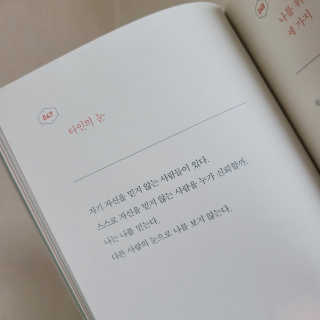 247
타인의 눈
자기 자신을 믿지 않는 사람들이 있다.
스스로 자신을 믿지 않는 사람을 누가 신뢰할까.
나는 나를 믿는다.
다른 사람의 눈으로 나를 보지 않는다.
248
나를 위
세 가지